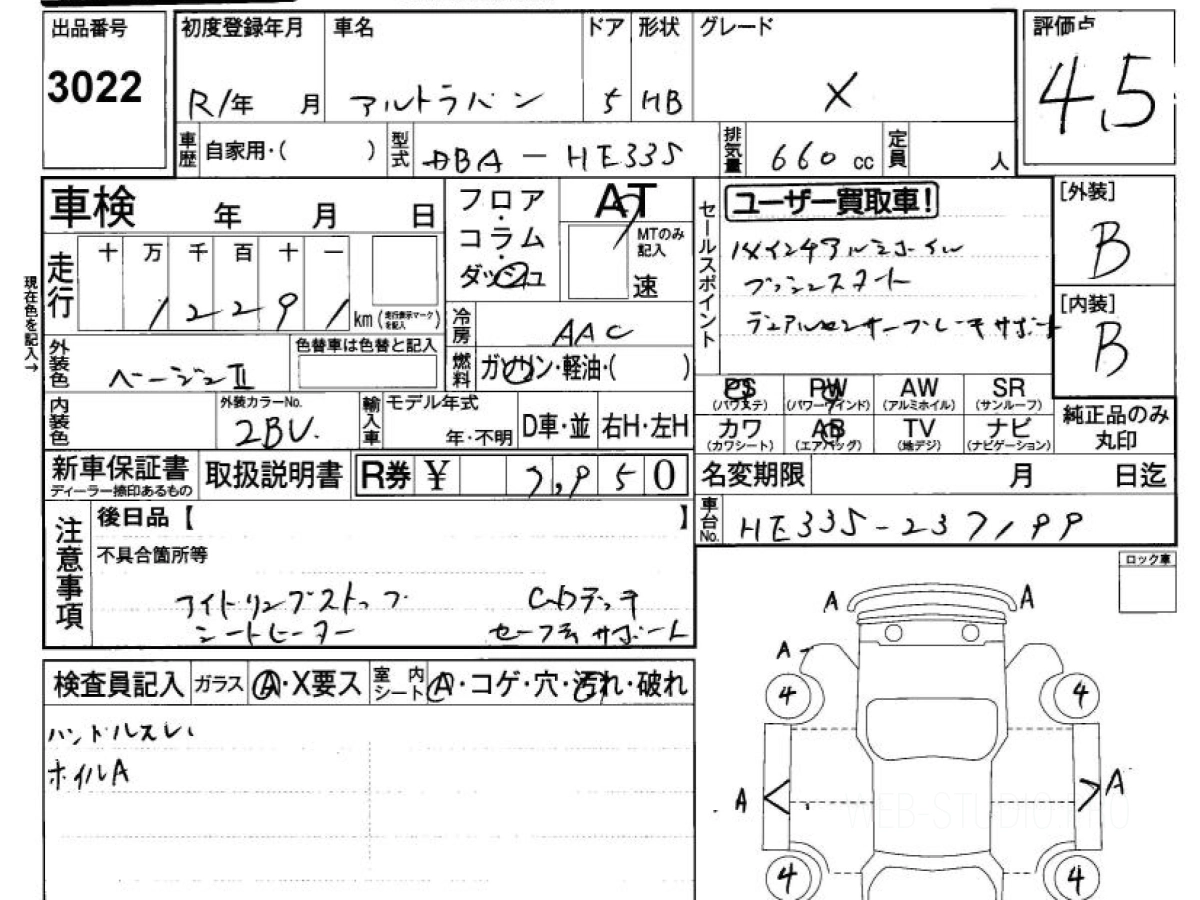 出品番号 初度登録年月 車名 ドア 形状 グレード 評価点
3022 R1年 月 アルトラパン 5 HB X 4.5
車歴 自家用・( ) 型式 DBA-HE33S 排気量 660cc 定員 人
車検 年 月 日 フロア・コラム・ダッシュ AT MTのみ記入 速
セールスポイント ユーザー買取車! [外装] B
14インチアルミホイル
プッシュスタート
デュアルセンサーブレーキサポート
[内装] B
現在色を記入→
走行 十 万 千 百 十 一
12291 km (走行表示マークを記入)
冷房 AAC
外装色 ベージュⅡ 色替車は色替と記入 燃料 ガソリン・軽油・( )
PS (パワステ) PW (パワーウインド) AW (アルミホイル) SR (サンルーフ)
内装色 外装カラーNo. 2BU. 輸入車 モデル年式 年・不明 D車・並 右H・左H
カワ (カワシート) AB (エアバッグ) TV (地デジ) ナビ (ナビゲーション) 純正品のみ丸印
新車保証書 ディーラー捺印あるもの 取扱説明書 R券 ¥ 7,950 名変期限 月 日迄
注意事項 後日品【 】 車台No. HE33S-237199
不具合箇所等
アイドリングストップ CDデッキ
シートヒーター セーフティサポート
ロック車
検査員記入 ガラス A・X要ス 室内シート A・コゲ・穴・汚れ・破れ
ハンドルスレ
ホイルA
A A
A
4 4
A A
4 4
WEB-STUDIO.PRO